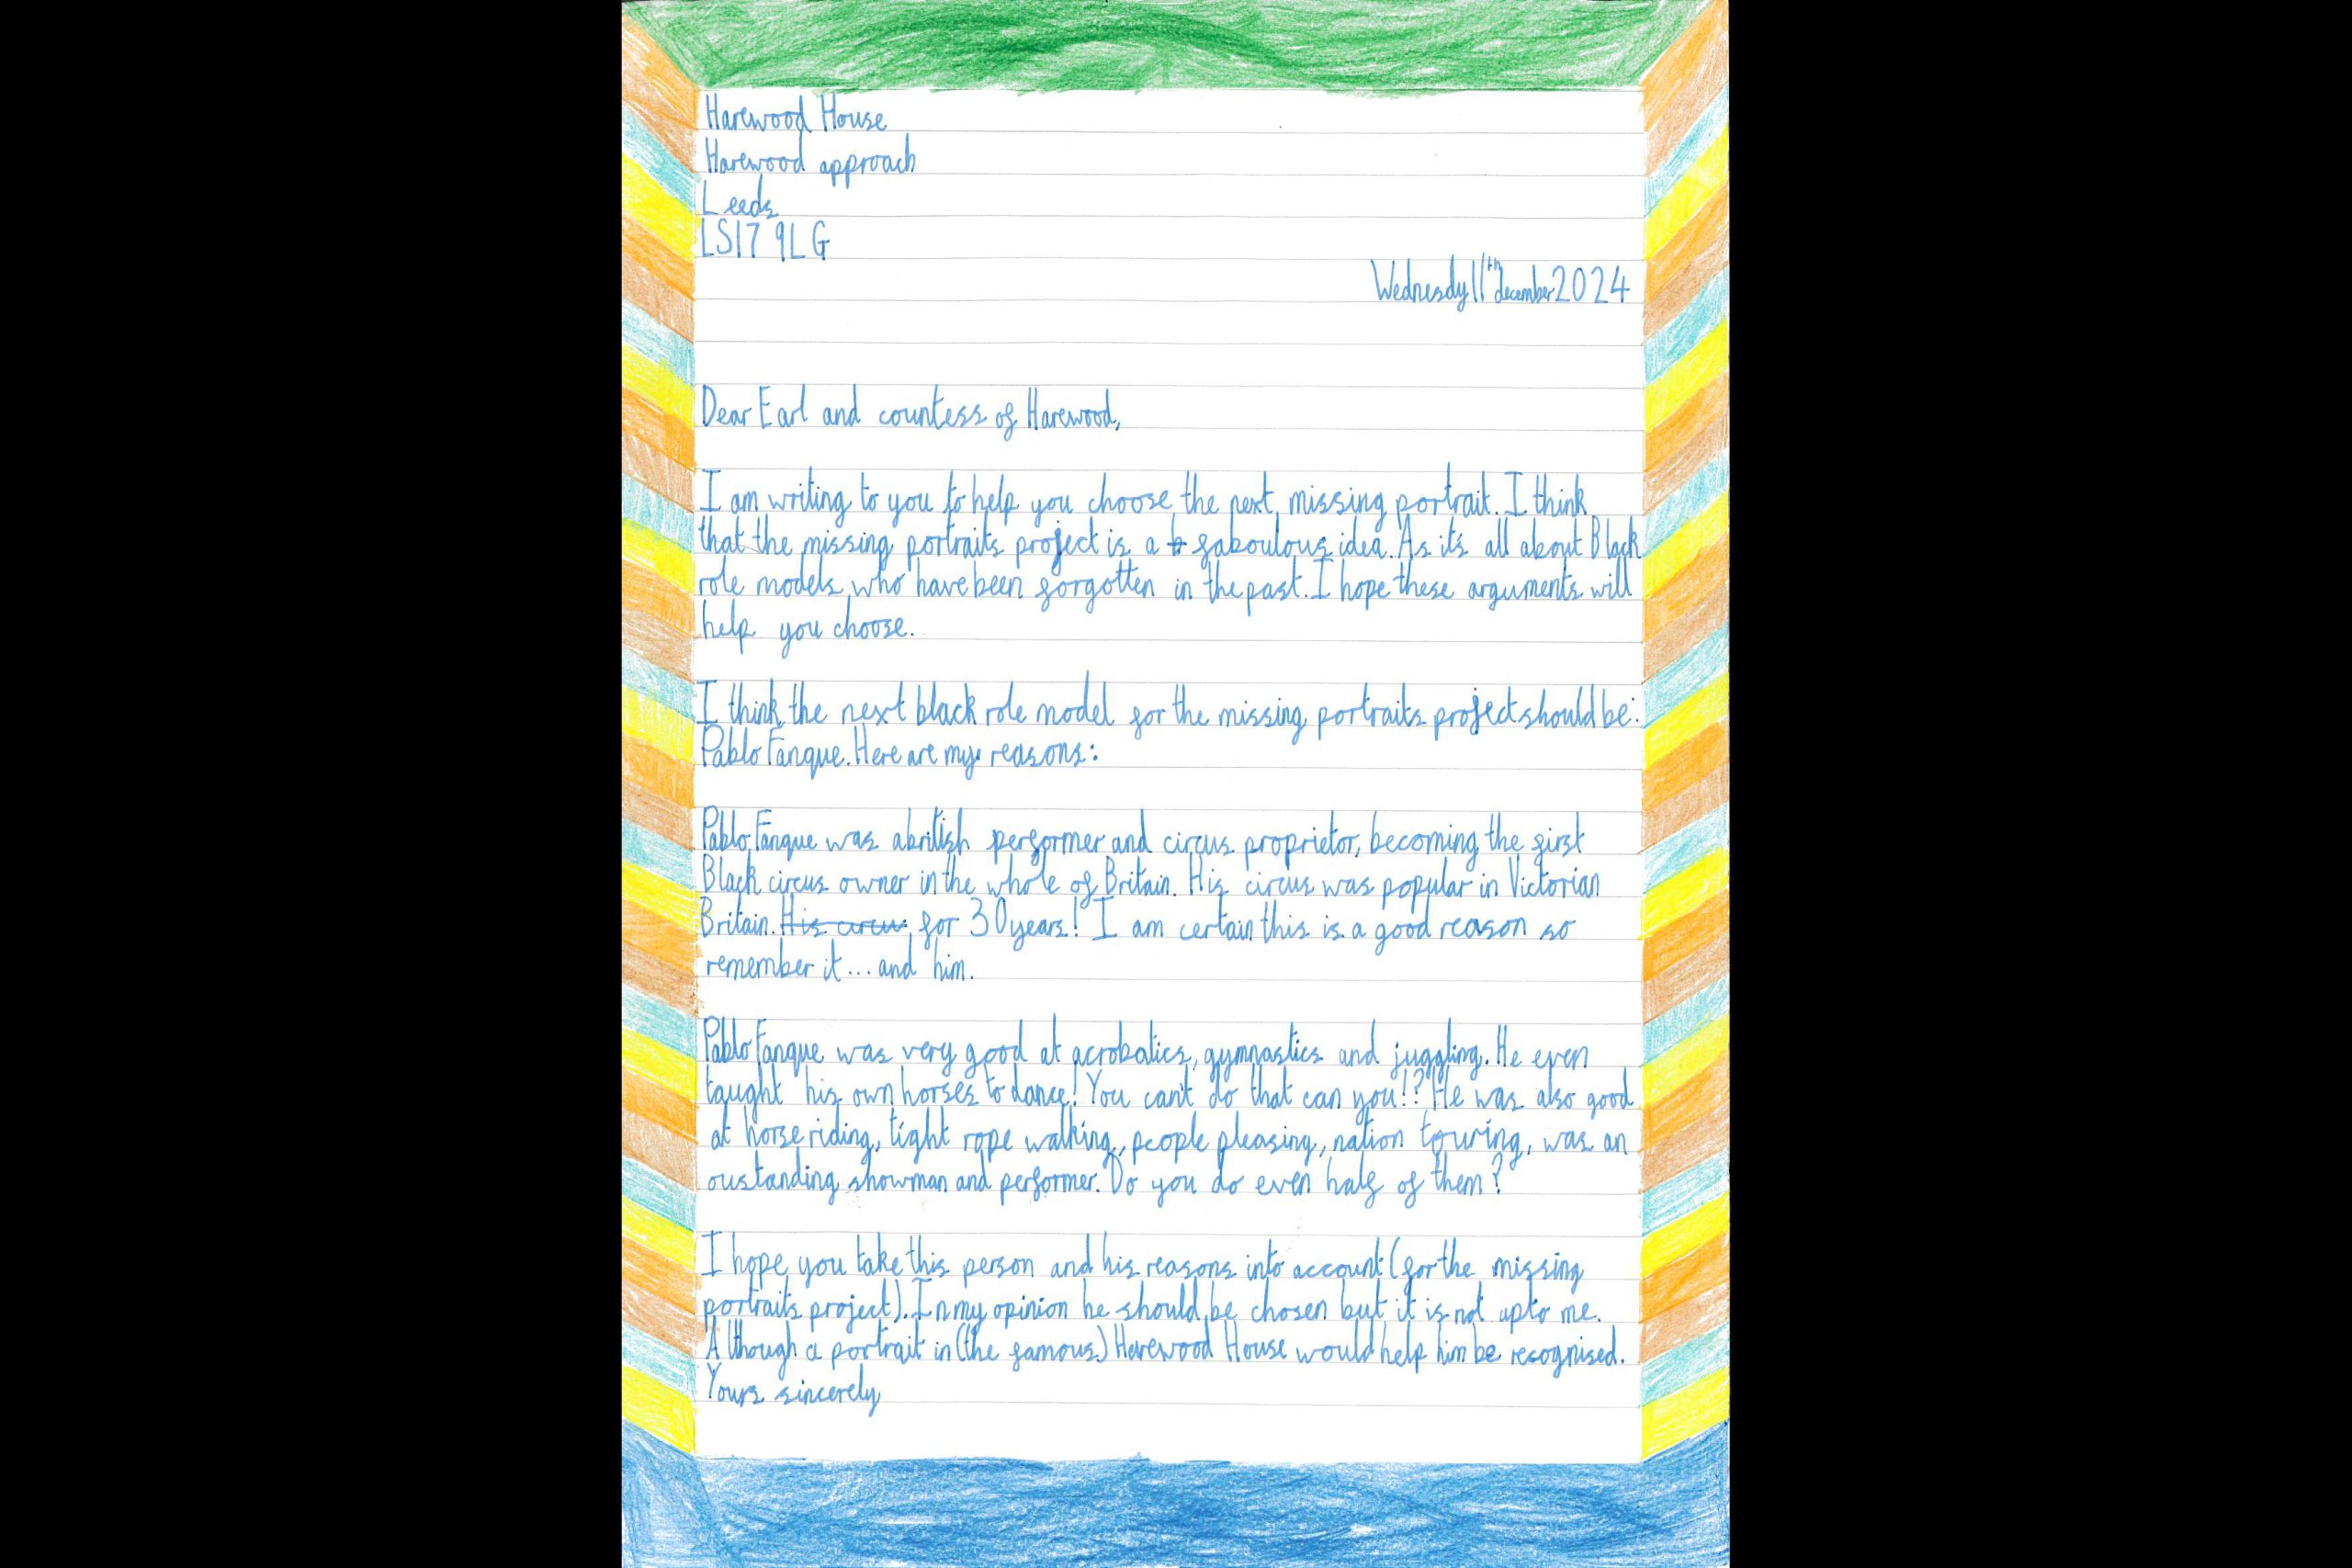 Harewood House
Harewood approach
Leeds
LS17 9LG
Wednesdy 11th december 2024
Dear Earl and countess of Harewood,
I am writing to you to help you choose the next missing portrait. I think
that the missing portraits project is a faboulous idea. As it's all about Black
role models who have been forgotten in the past. I hope these arguments will
help you choose.
I think the next black role model for the missing portraits project should be:
Pablo Fanque. Here are my reasons:
Pablo Fanque was a british performer and circus proprietor, becoming the first
Black circus owner in the whole of Britain. His circus was popular in Victorian
Britain. His circus for 30 years! I am certain this is a good reason so
remember it... and him.
Pablo Fanque was very good at acrobatics, gymnastics and juggling. He even
taught his own horses to dance! You can't do that can you!? He was also good
at horse riding, tight rope walking, people pleasing, nation touring, was an
oustanding showman and performer. Do you do even half of them?
I hope you take this person and his reasons into account (for the missing
portraits project). In my opinion he should be chosen but it is not upto me.
Although a portrait in (the famous) Harewood House would help him be recognised.
Yours sincerely